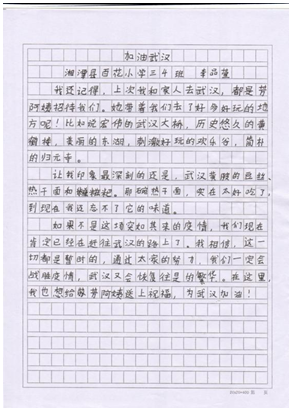 加油武汉
湘潭县百花小学三4班 李品萱
我还记得，上次我和家人去武汉，都是芳
阿姨招待我们。她带着我们去了好多好玩的地
方呢！比如说宏伟的武汉大桥，历史悠久的黄
鹤楼，美丽的东湖，刺激好玩的欢乐谷，简朴
的归元寺。
让我印象最深刻的还是，武汉黄陂的豆丝、
热干面和糍粑。那碗热干面，实在太好吃了，
到现在我还忘不了它的味道。
如果不是这场突如其来的疫情，我们现在
肯定已经在赶往武汉的路上了。我相信，这一
切都是暂时的，通过大家的努力，我们一定会
战胜疫情，武汉又会恢复往日的繁华。在这里，
我也想给芳芳阿姨送上祝福，为武汉加油！